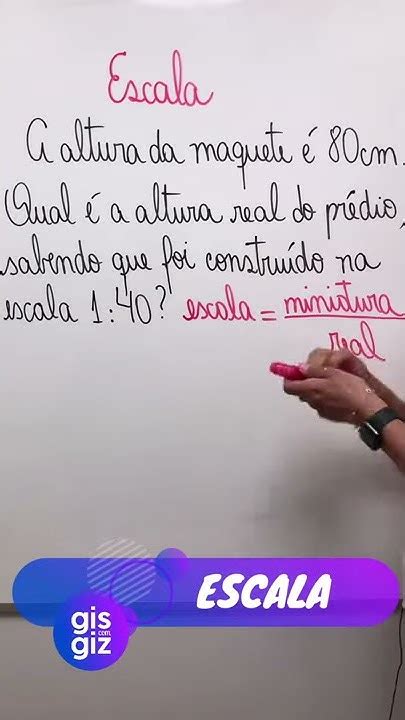 Escala
A altura da maquete é 80cm.
Qual é a altura real do prédio,
sabendo que foi construído na
escala 1:40? escala = miniatura
real
ESCALA
gis
com
giz